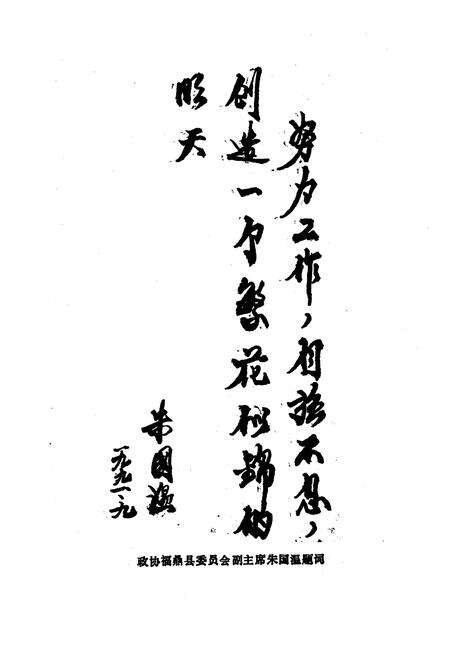 努力工作，自强不息，
创造一个繁花似锦的
明天
朱国温
一九九一.九
政协福鼎县委员会副主席朱国温题词